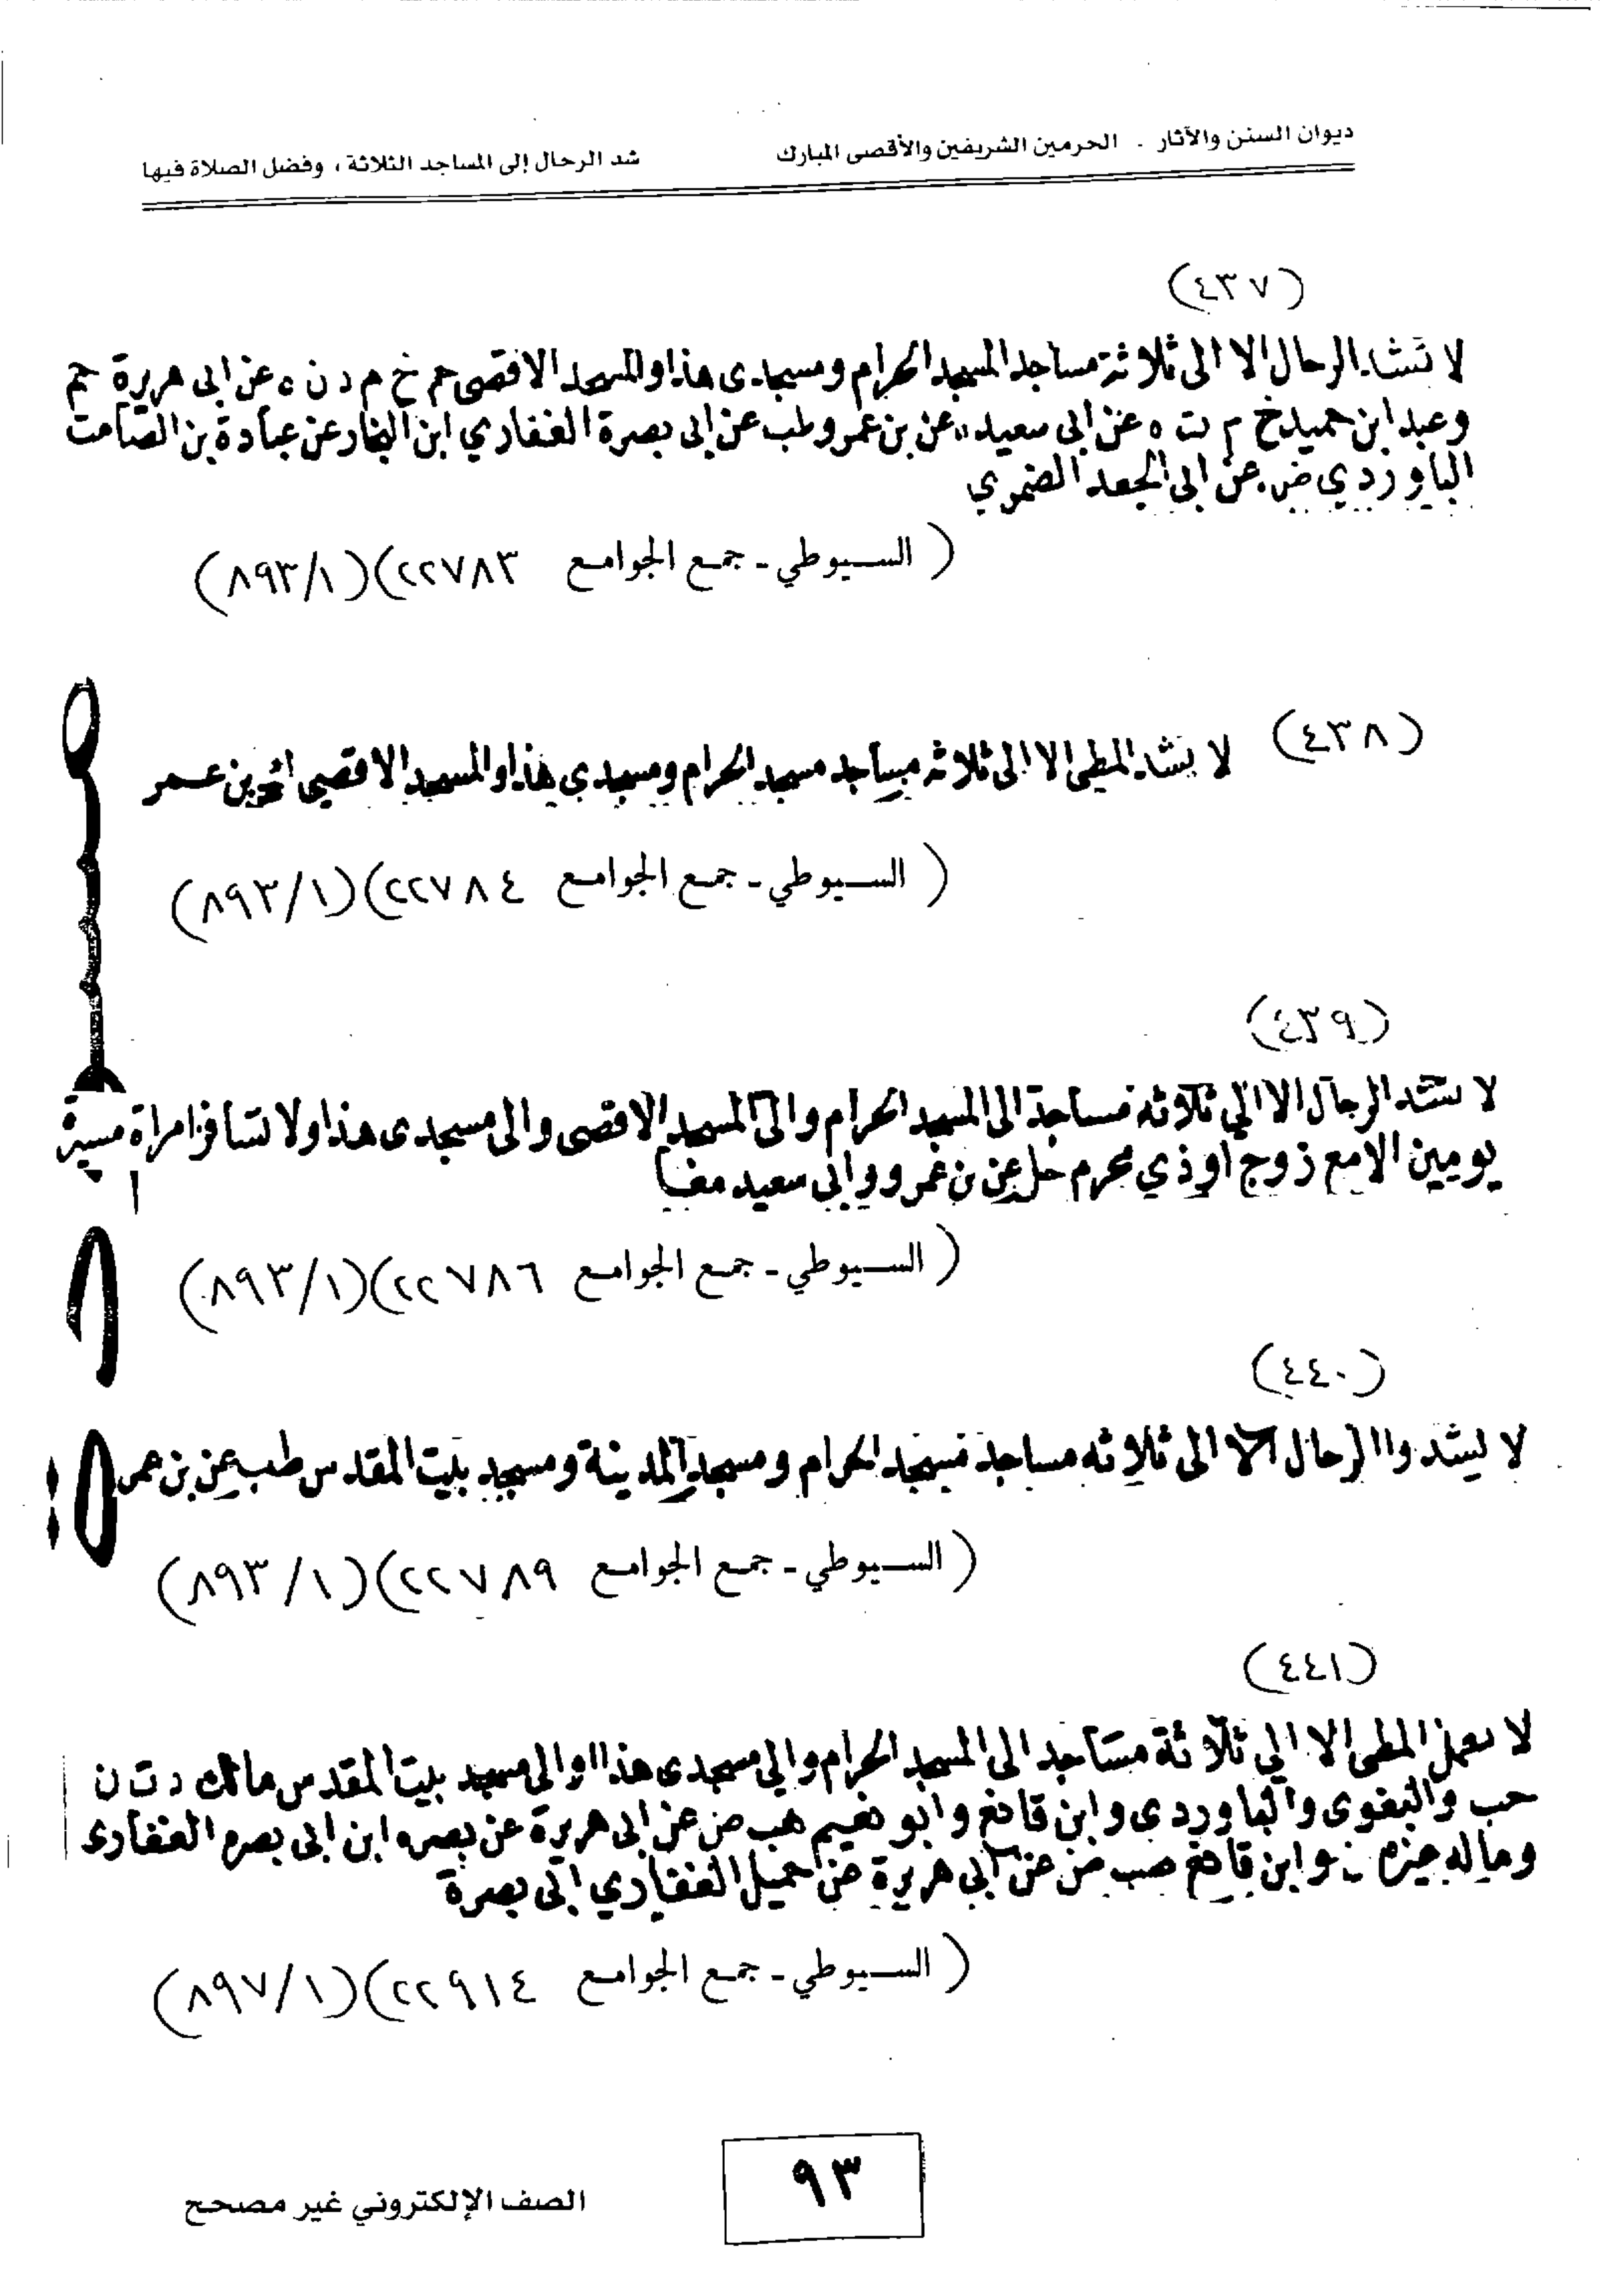 ديوان السنن والآثار - الحرمين الشريفين والأقصى المبارك
شد الرحال إلى المساجد الثلاثة ، وفضل الصلاة فيها
(٤٣٧)
لا تشد الرحال الا الى ثلاثة مساجد المسجد الحرام ومسجدى هذا والمسجد الاقصى حم خ م د ن ه عن ابى هريرة حم
وعبد ابن حميد خ م ت ه عن ابى سعيد ه عن بن عمر وطب عن ابى بصرة الغفاري ابن النجار عن عبادة بن الصامت
الباوردي ض عن ابى الجعد الضمري
( السيوطي - جمع الجوامع ٢٢٧٨٣)(٨٩٣/١)
(٤٣٨) لا تشد المطى الا الى ثلاثة مساجد مسجد الحرام ومسجدى هذا والمسجد الاقصى بن عمر
( السيوطي - جمع الجوامع ٢٢٧٨٤)(٨٩٣/١)
(٤٣٩)
لا تشد الرحال الا الى ثلاثه مساجد الى المسجد الحرام والى المسجد الاقصى والى مسجدى هذا ولا تسافر امراة مسيرة
يومين الا مع زوج او ذي محرم حل عن بن عمرو وابى سعيد معا
( السيوطي - جمع الجوامع ٢٢٧٨٦)(٨٩٣/١)
(٤٤٠)
لا تشدوا الرحال الا الى ثلاثه مساجد مسجد الحرام ومسجد المدينة ومسجد بيت المقدس طب عن بن عمر
( السيوطي - جمع الجوامع ٢٢٧٨٩)(٨٩٣/١)
(٤٤١)
لا تعمل المطى الا الى ثلاثة مساجد الى المسجد الحرام والى مسجدى هذا والى مسجد بيت المقدس مالك د ت ن
حب والبغوى والباوردى وابن قانع وابو نعيم هب ض عن ابى هريرة عن بصره ابن ابى بصره الغفارى
وماله غيره وابن قانع ض عن ابى هريرة عن حميل الغفاري ابى بصرة
( السيوطي - جمع الجوامع ٢٢٩١٤)(٨٩٧/١)
٩٣
الصف الإلكتروني غير مصحح